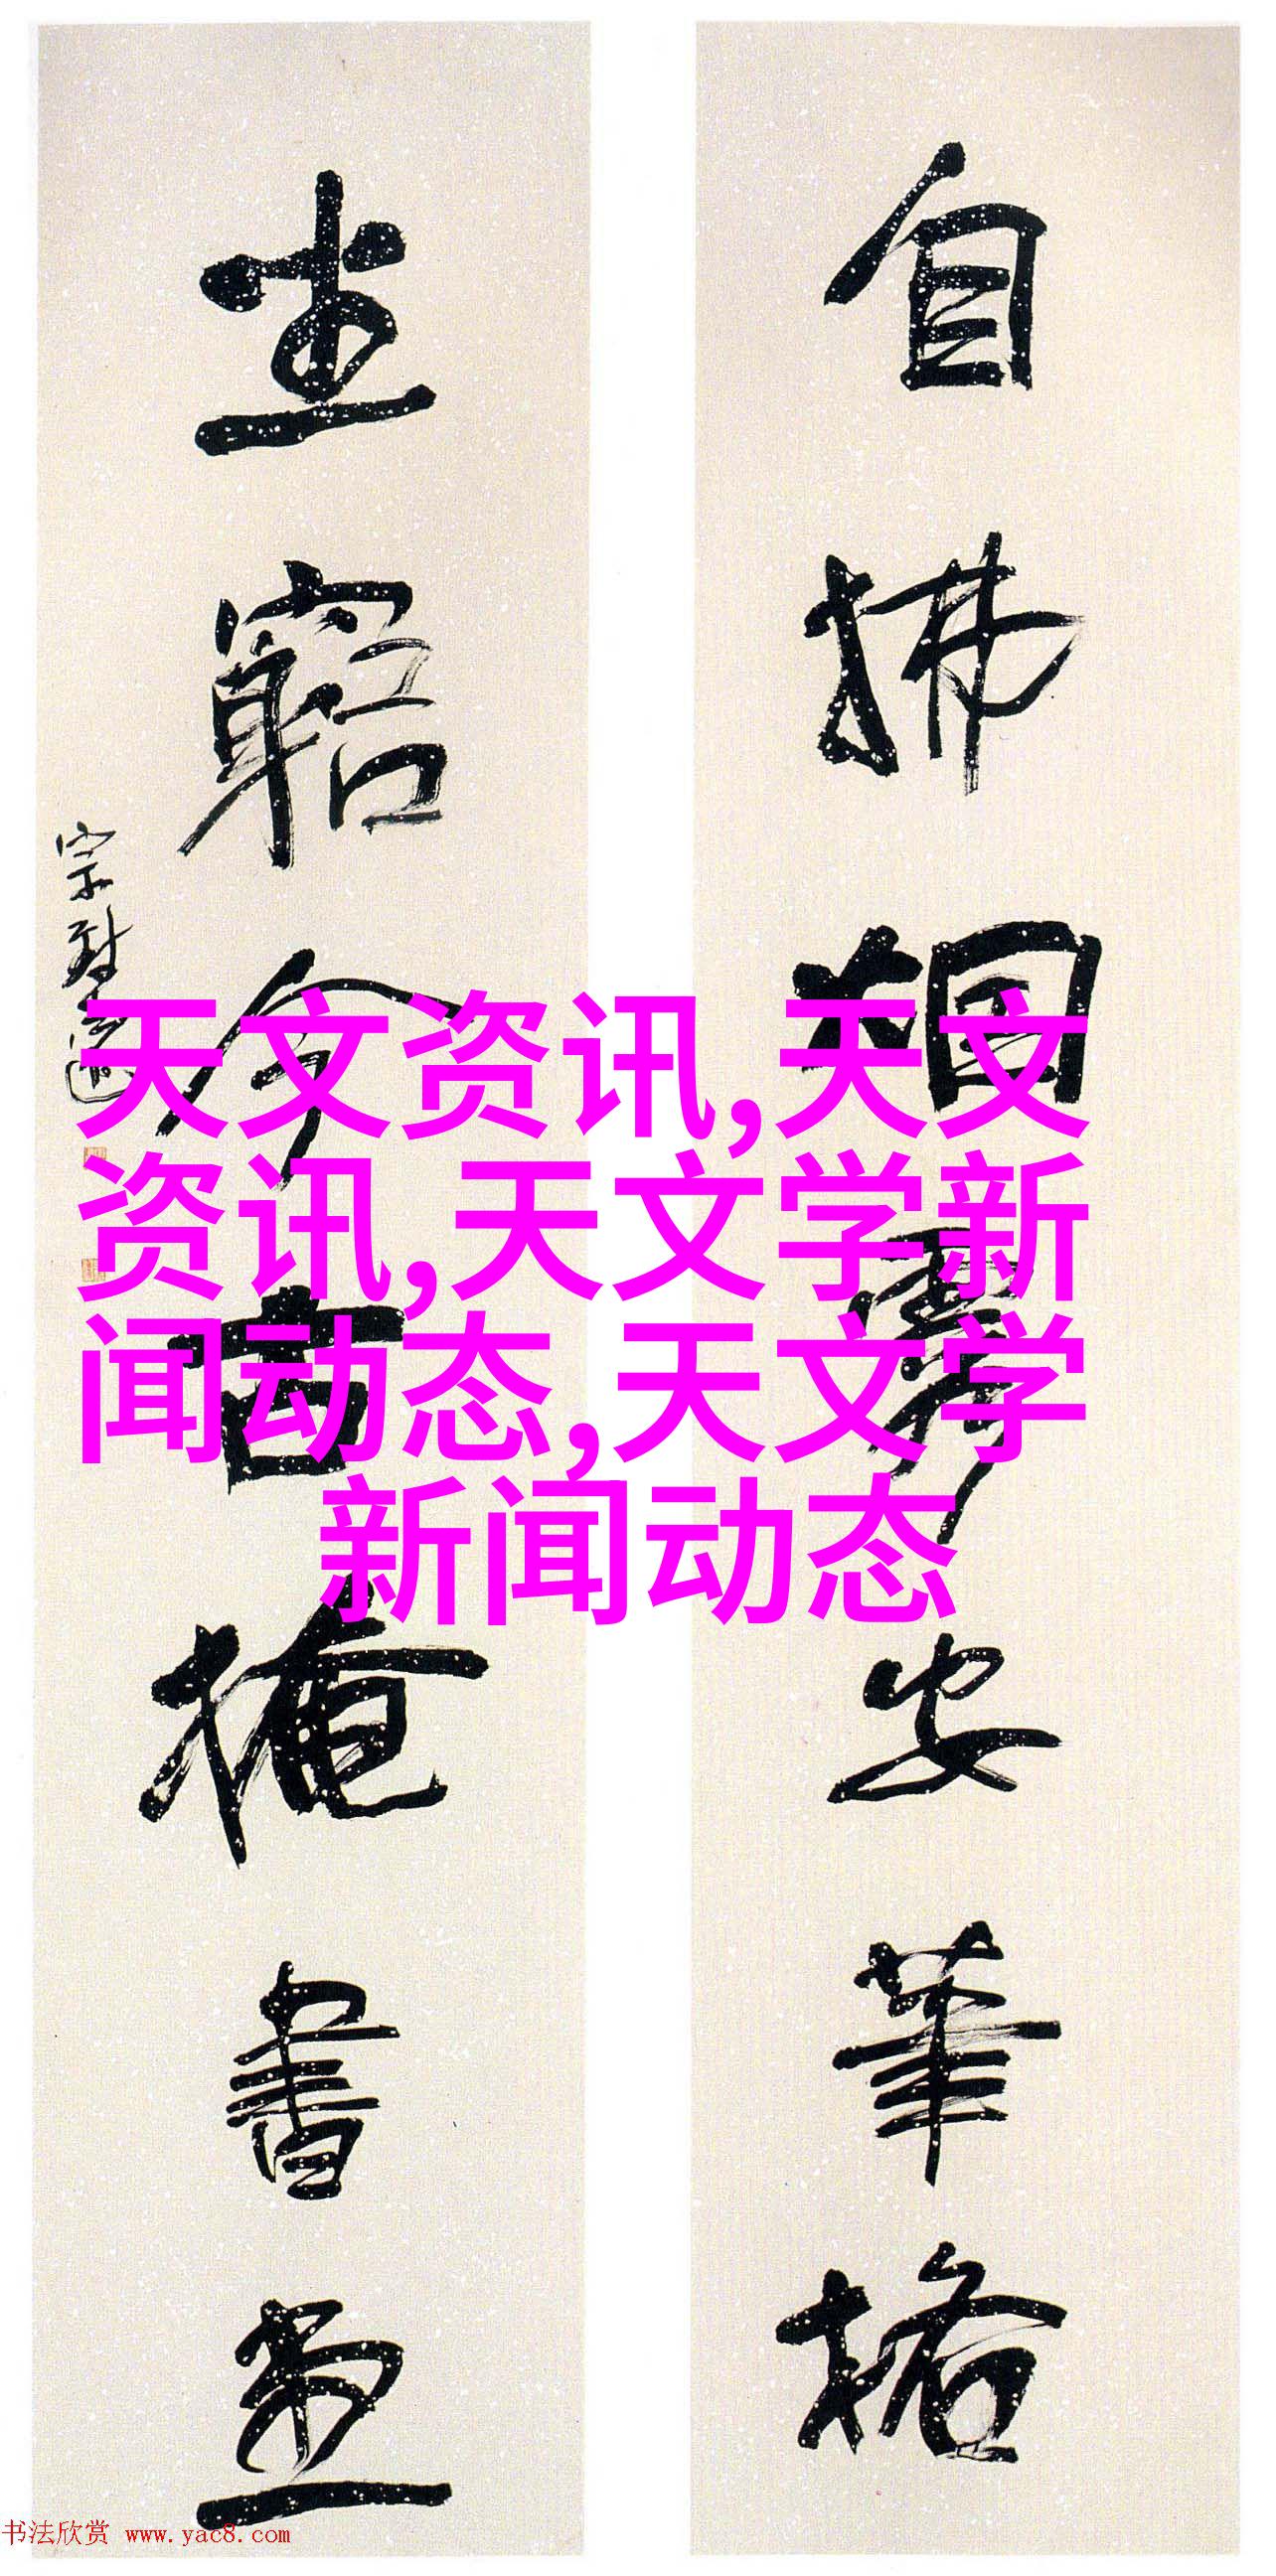 自拂烟霞安筆格
坐窮今古掩書堂
天文资讯,天文
资讯,天文学新
闻动态,天文学
新闻动态
书法欣赏 www.yac8.com